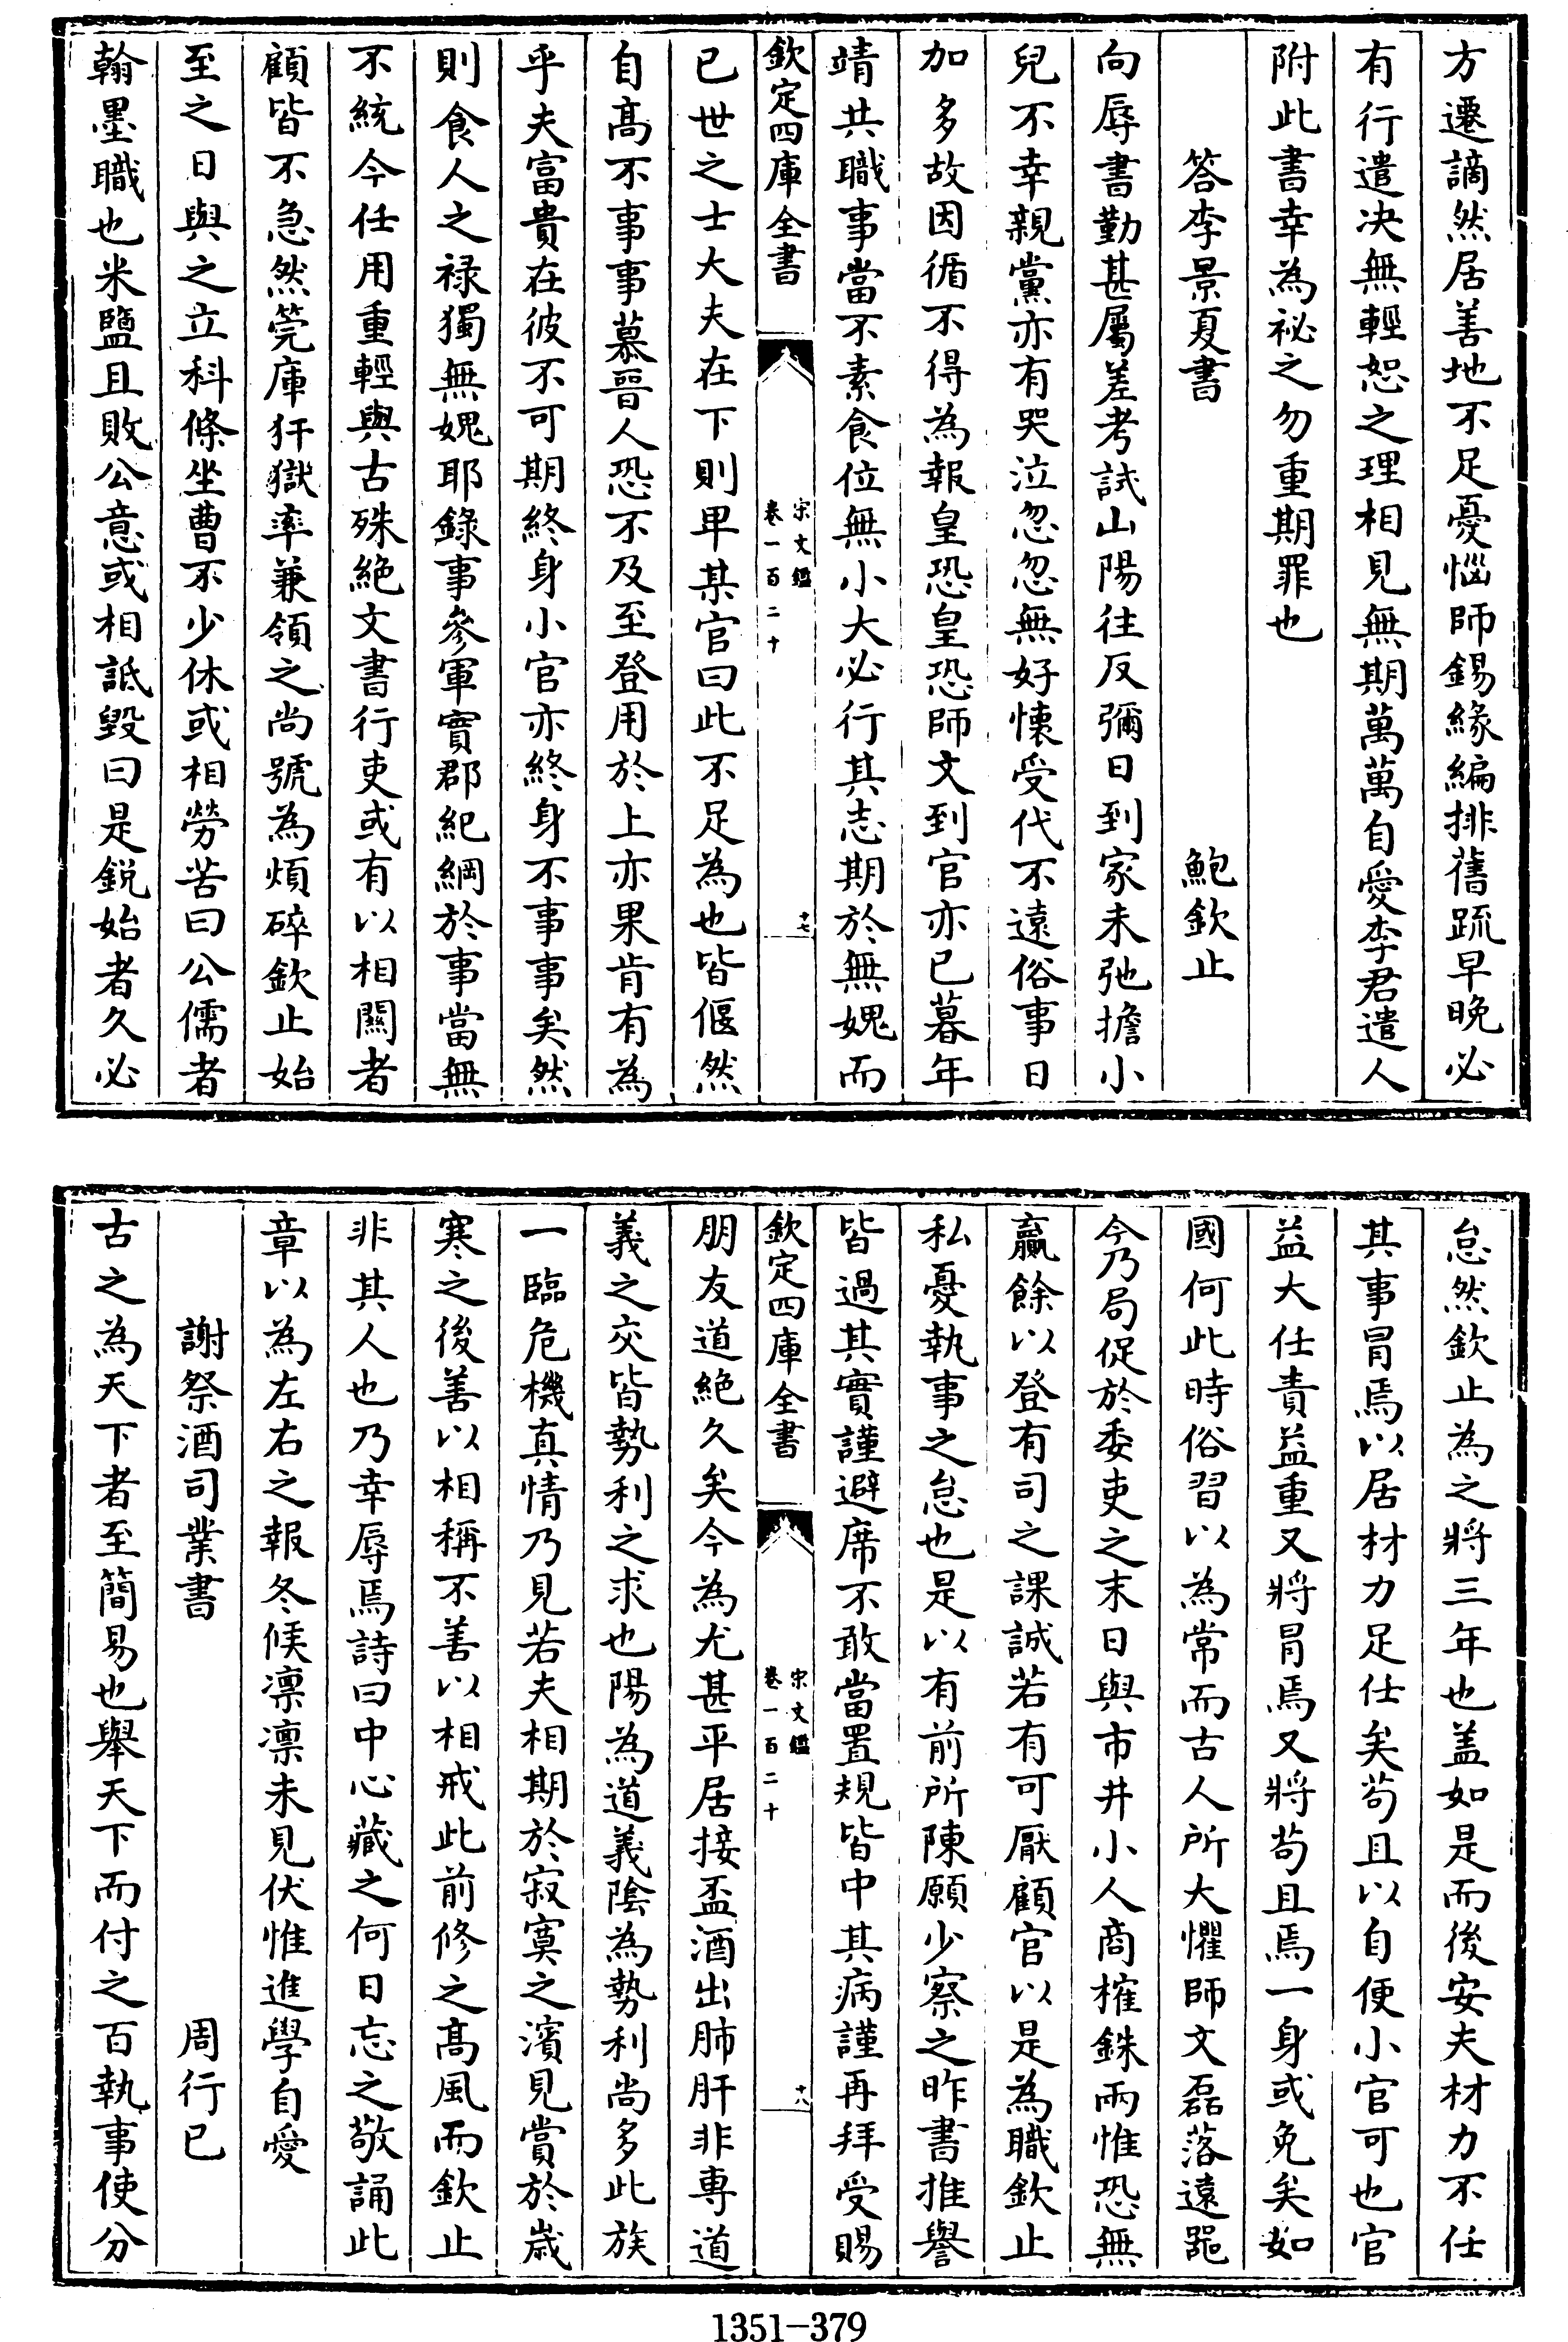 方遷謫然居善地不足憂惱師錫緣編排舊䟽早晚必
有行遣决無輕恕之理相見無期萬萬自愛李君遣人
附此書幸為祕之勿重期罪也
答李景夏書 鮑欽止
向辱書勤甚屬差考試山陽往反彌日到家未弛擔小
兒不幸親黨亦有哭泣忽忽無好懐受代不遠俗事日
加多故因循不得為報皇恐皇恐師文到官亦已暮年
靖共職事當不素食位無小大必行其志期於無媿而
欽定四庫全書 宋文鑑 卷一百二十 十七
已世之士大夫在下則卑某官曰此不足為也皆偃然
自髙不事事慕晉人恐不及至登用於上亦果肯有為
乎夫富貴在彼不可期終身小官亦終身不事事矣然
則食人之禄獨無媿耶錄事參軍實郡紀綱於事當無
不統今任用重輕與古殊絶文書行吏或有以相關者
顧皆不急然筦庫犴獄率兼領之尚號為煩碎欽止始
至之日與之立科條坐曹不少休或相勞苦曰公儒者
翰墨職也米鹽且敗公意或相詆毀曰是鋭始者久必
怠然欽止為之將三年也盖如是而後安夫材力不任
其事冐焉以居材力足任矣茍且以自便小官可也官
益大任責益重又將冐焉又將茍且焉一身或免矣如
國何此時俗習以為常而古人所大懼師文磊落遠噐
今乃局促於委吏之末日與市井小人商榷銖兩惟恐無
贏餘以登有司之課誠若有可厭顧官以是為職欽止
私憂執事之怠也是以有前所陳願少察之昨書推譽
皆過其實謹避席不敢當置規皆中其病謹再拜受賜
欽定四庫全書 宋文鑑 卷一百二十 十八
朋友道絶久矣今為尤甚平居接盃酒出肺肝非専道
義之交皆勢利之求也陽為道義陰為勢利尚多此族
一臨危機真情乃見若夫相期於寂寞之濱見賞於歳
寒之後善以相稱不善以相戒此前修之髙風而欽止
非其人也乃幸辱焉詩曰中心藏之何日忘之敬誦此
章以為左右之報冬候凛凛未見伏惟進學自愛
謝祭酒司業書 周行已
古之為天下者至簡易也舉天下而付之百執事使分
1351-379